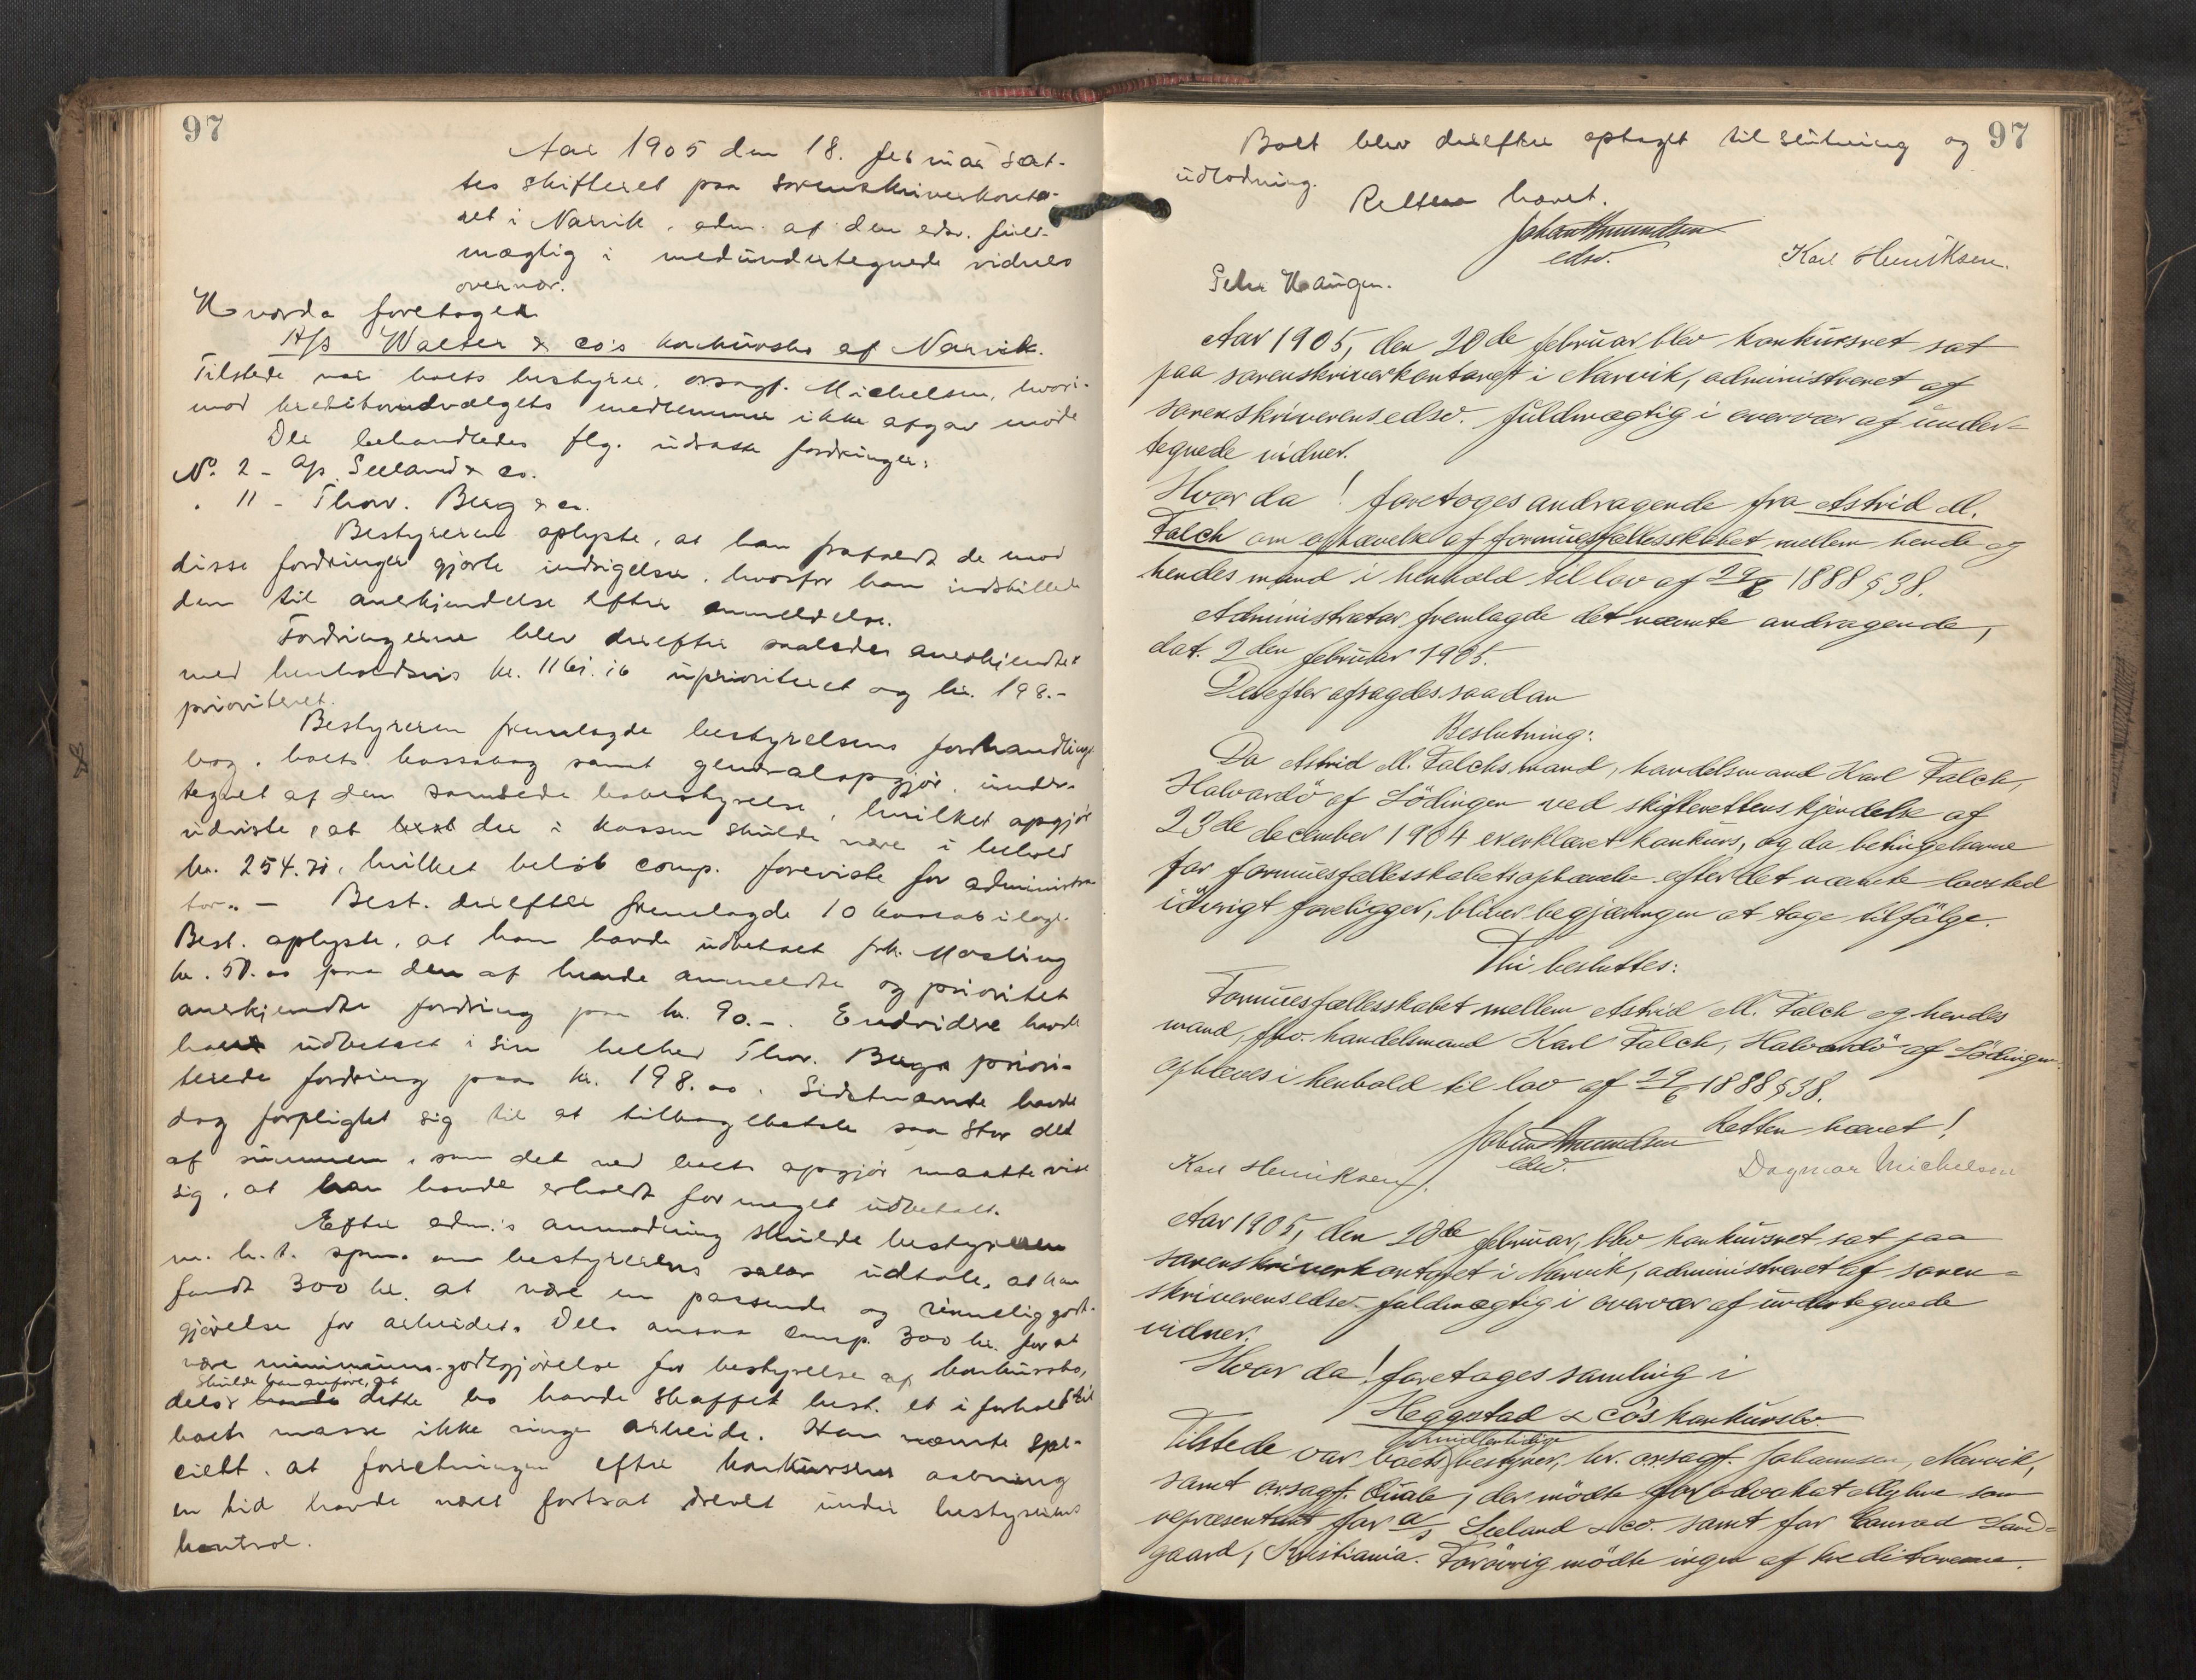 97
Aar 1905 den 18. februar sat-
tes skifteret paa sorenskriverkonto-
ret i Narvik, adm. af den edsv. full-
mægtig i medundertegnede vidners
overvær.
Hvorda foretoges
A/s Walter & co's konkursbo af Narvik.
Tilstede var boets bestyrer, orsagf. Michelsen, hvori-
mod kreditorudvalgets medlemmer ikke afgav møde
Der behandledes flg. udsatte fordringer:
No. 2 - A/s Seeland & co.
" 11 - Thorv. Berg & co.
Bestyreren oplyste, at han frafaldt de mod
disse fordringer gjorte indsigelser, hvorfor han indstillede
dem til anerkjendelse efter anmeldelse.
Fordringerne blev derefter saaledes anerkjendte
med henholdsvis kr. uprioriteret og kr. 198.-
prioriteret.
Bestyreren fremlagde bestyrelsens forhandlings-
bog, boets kassabog samt generalopgjør, under-
tegnet af den samlede bobestyrelse, hvilket opgjør
udviste, at der i kassen skulde være i behold
kr. 254. hvilket beløb comp. foreviste for administra-
tor. — Best. derefter fremlagde 10 kassabilage.
Best. oplyste, at han havde udbetalt frk. Mosling
kr. 50.00 paa den af hende anmeldte og prioritet
anerkjendte fordring paa kr. 90.-. Endvidere havde
han udbetalt i sin helhed Thor. Bergs priori-
terede fordring paa kr. 198.00. Sidstnævnte havde
dog forpligtet sig til at tilbagebetale saa stor del
af summen, som det ved boets opgjør maatte vise
sig, at han havde erholdt for meget udbetalt.
Efter adm.'s anmodning skulde bestyreren
m. h. t. spm. om bestyrerens salær udtale, at han
fandt 300 kr. at være en passende og rimelig godt-
gjørelse for arbeidet. Dels ansaa comp. 300 kr. for at
være minimums-godtgjørelse for bestyrelse af konkursbo,
skulde han anføre, at
dels dette bo havde skaffet best. et i forhold til
boets masse ikke ringe arbeide. Han nævnte spe-
cielt, at forretningen efter konkursens aabning
en tid havde været fortsat drevet under bestyrerens
kontrol.
97
Boet blev derefter optaget til slutning og
udlodning.
Retten hævet.
Johan Amundsen
edsv.
Karl Henriksen.
Peter Haugen.
Aar 1905, den 20de februar blev konkursret sat
paa sorenskriverkontoret i Narvik, administreret af
sorenskriverens edsv. fuldmægtig i overvær af under-
tegnede vidner.
Hvor da! foretoges andragende fra Astrid M.
Falch om ophævelse af formuesfællesskabet mellem hende og
hendes mand i henhold til lov af 29/6 1888 § 38.
Administrator fremlagde det nævnte andragende,
dat. 2den februar 1905.
Derefter afsagdes saadan
Beslutning:
Da Astrid M. Falchs mand, handelsmand Karl Falch,
Halvardö af Lödingen ved skifterettens kjendelse af
23de december 1904 er erklæret konkurs, og da betingelserne
for formuesfællesskabets ophævelse efter det nævnte lovsted
iövrigt foreligger, bliver begjæringen at tage tilfölge.
Thi besluttes:
Formuesfællesskabet mellem Astrid M. Falch og hendes
mand, fhv. handelsmand Karl Falch, Halvardö af Lödingen
ophæves i henhold til lov af 29/6 1888 § 38.
Retten hævet!
Johan Amundsen
edsv.
Karl Henriksen.
Dagmar Michelsen
Aar 1905, den 20de februar, blev konkursret sat paa
sorenskriverkontoret i Narvik, administreret af soren-
skriverens edsv. fuldmægtig i overvær af undertegnede
vidner.
Hvor da! foretages samling i
Heggstad & co's konkursbo.
midlertidige
Tilstede var boets bestyrer, hr. orsagf. Johannesen, Narvik,
samt orsagf. Quale, der mödte for advokat som
repræsentant for a/s Seeland & co. samt for Conrad Land-
gaard, Kristiania. Forövrig mödte ingen af kreditorerne.